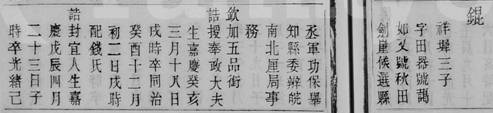 錕
祥驊三子
字田器號藹
如又號秋田
劍崖候選縣
丞軍功保舉
知縣委辦皖
南北厘局事
務
欽加五品銜
誥授奉政大夫
生嘉慶癸亥
三月十八日
戌時卒同治
癸酉十二月
初二日戌時
配錢氏
誥封宜人生嘉
慶戊辰四月
二十三日子
時卒光緒己